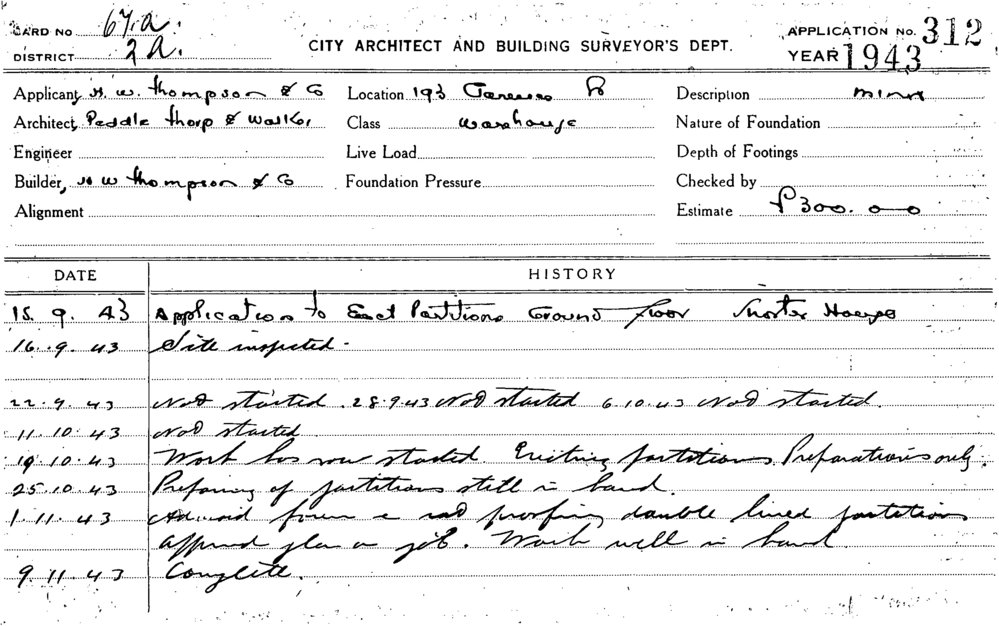 CARD NO 67.a.
DISTRICT 2a.
CITY ARCHITECT AND BUILDING SURVEYOR'S DEPT.
APPLICATION No. 312
YEAR 1943
Applicant, H. W. Thompson & Co
Location 193 Clarence St
Description minor
Architect, Peddle Thorp & Walker
Class Warehouse
Nature of Foundation
Engineer
Live Load
Depth of Footings
Builder, H W Thompson & Co
Foundation Pressure
Checked by
Alignment
Estimate £300. 0-0
DATE HISTORY
15. 9. 43 Application to Erect Partitions Ground floor Shorter House
16. 9. 43 Site inspected.
22. 9. 43 Not started. 28.9.43 Not started 6.10.43 Not started.
11. 10. 43 Not started
19. 10. 43 Work has now started. Erecting partitions. Preparations only.
25. 10. 43 Preparing of partitions still in hand.
1. 11. 43 rat proofing double lined partitions
approved plan on job. Work well in hand
9. 11. 43 Complete.